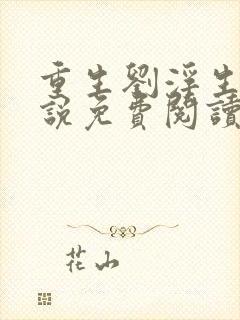 重生劉淫生
說免費閱讀
花山